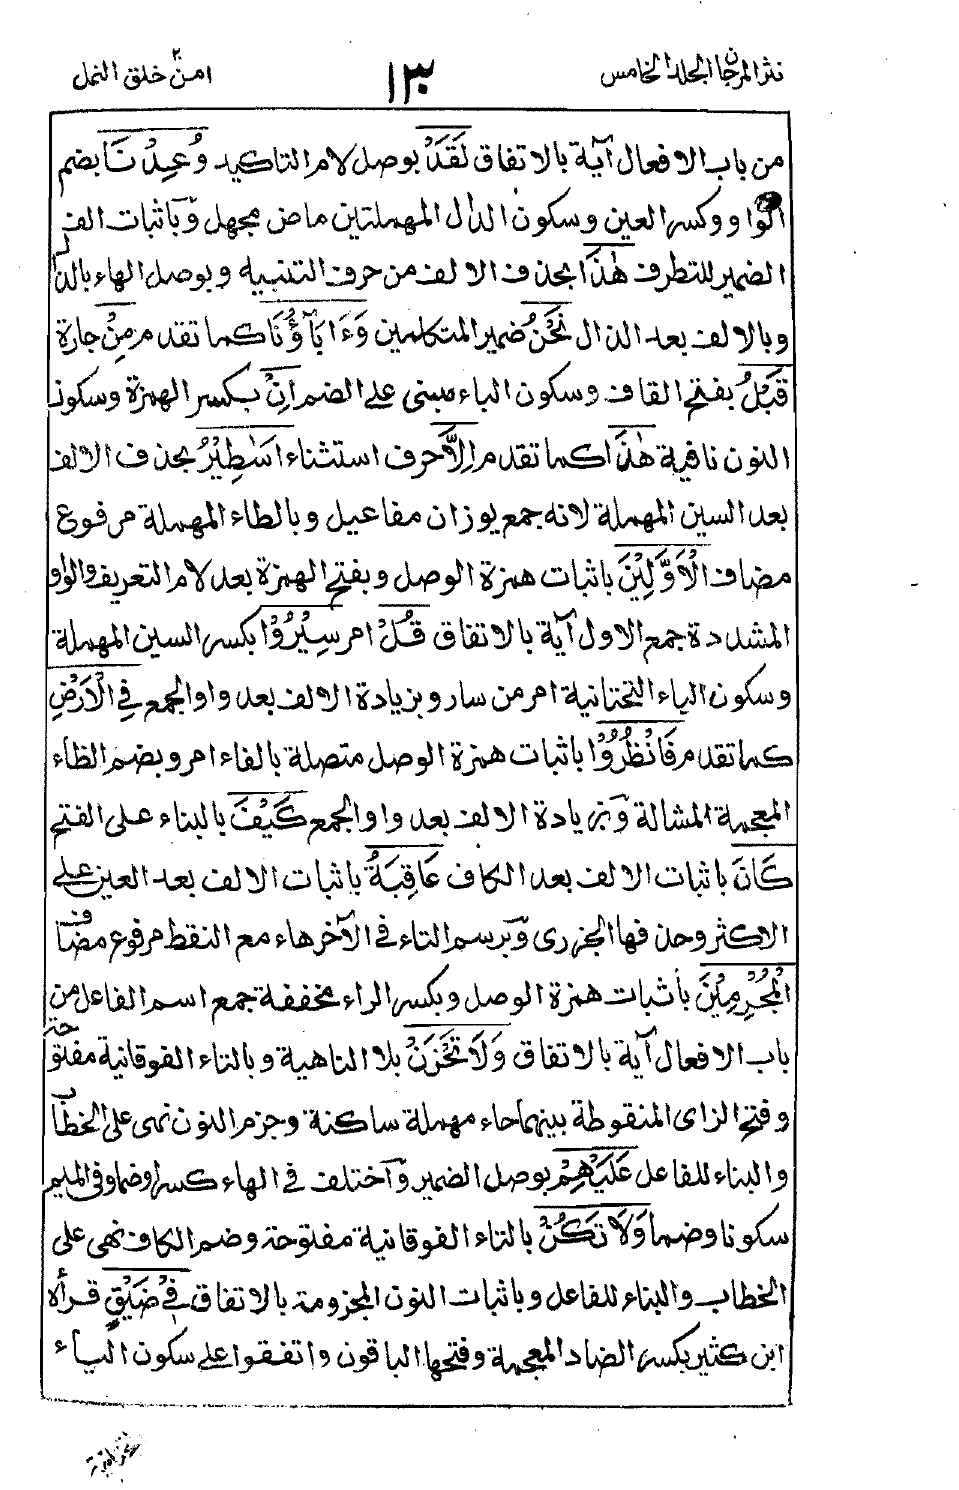 نثر المرجان الجلد الخامس
١٣٠
امن٢ خلق النمل
من باب الافعال آية بالاتفاق لَقَدْ بوصل لام التاكيد وُعِدْنَا بضم
الواو وكسر العين وسكون الدال المهملتين ماض مجهل وباثبات الف
الضمير للتطرف هٰذَا بحذف الالف من حرف التنبيه وبوصل الهاء بالذال
وبالالف بعد الذال نَحْنُ ضمير المتكلمين وَءَابَآؤُنَا كما تقدم مِنْ جارة
قَبْلُ بفتح القاف وسكون الباء مبنى على الضم اِنْ بكسر الهمزة وسكون
النون نافية هٰذَا كما تقدم اِلَّا حرف استثناء اَسٰطِيْرُ بحذف الالف
بعد السين المهملة لانه جمع يوزان مفاعيل وبالطاء المهملة مرفوع
مضاف الْاَوَّلِيْنَ باثبات همزة الوصل وبفتح الهمزة بعد لام التعريف والواو
المشددة جمع الاول آية بالاتفاق قُلْ امر سِيْرُوْا بكسر السين المهملة
وسكون الياء التحتانية امر من سار وبزيادة الالف بعد واو الجمع فِى الْاَرْضِ
كما تقدم فَانْظُرُوْا باثبات همزة الوصل متصلة بالفاء امر وبضم الظاء
المعجمة المشالة وبزيادة الالف بعد واو الجمع كَيْفَ بالبناء على الفتح
كَانَ باثبات الالف بعد الكاف عَاقِبَةُ باثبات الالف بعد العين على
الاكثر وحذفها الجزرى وبرسم التاء فى الآخر هاء مع النقط مرفوع مضاف
الْمُجْرِمِيْنَ باثبات همزة الوصل وبكسر الراء مخففة جمع اسم الفاعل من
باب الافعال آية بالاتفاق وَلَا تَحْزَنْ بلا الناهية وبالتاء الفوقانية مفتوحة
وفتح الزاى المنقوطة بينهما حاء مهملة ساكنة وجزم النون نهى على الخطاب
والبناء للفاعل عَلَيْهِمْ بوصل الضمير واختلف فى الهاء كسرا وضما وفى الميم
سكونا وضما وَلَا تَكُنْ بالتاء الفوقانية مفتوحة وضم الكاف نهى على
الخطاب والبناء للفاعل وباثبات النون المجزومة بالاتفاق فِىْ ضَيْقٍ قرأه
ابن كثير بكسر الضاد المعجمة وفتحها الباقون واتفقوا على سكون الياء